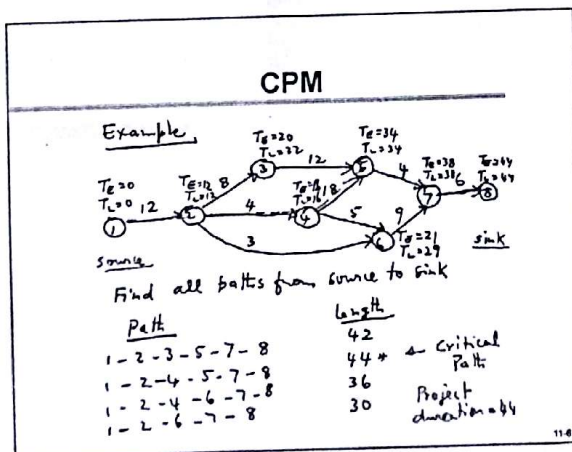 CPM
Example
TE=0
TL=0
12
1
source
TE=12
TL=12
2
8
TE=20
TL=22
3
12
TE=34
TL=34
5
4
TE=38
TL=38
7
6
TE=44
TL=44
8
sink
4
TL=16
4
18
5
3
6
9
TE=21
TL=29
Find all paths from source to sink
Path Length
1-2-3-5-7-8 42
1-2-4-5-7-8 44* ← Critical Path
1-2-4-6-7-8 36
1-2-6-7-8 30
Project
duration=44